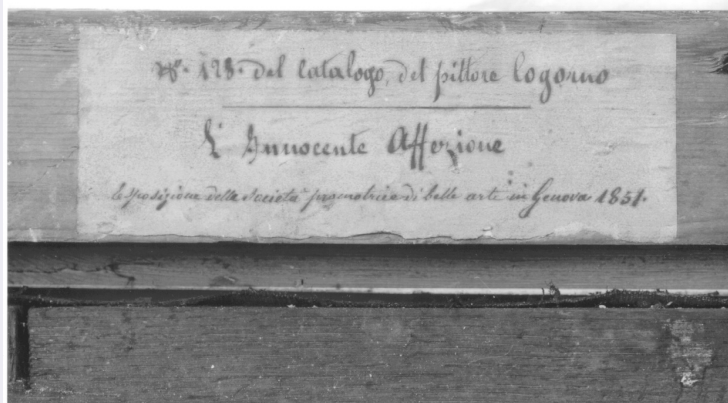 Nº. 128. del catalogo, del pittore Logorno
L' Innocente Affezione
Esposizione della Società promotrice di belle arte in Genova 1851.